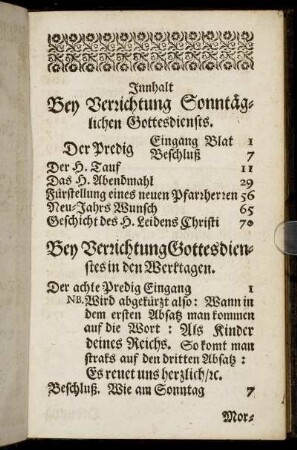 Innhalt
Bey Verrichtung Sonntäg-
lichen Gottesdiensts.
Der Predig Eingang Blat 1
Beschluß 7
Der H. Tauf 11
Das H. Abendmahl 29
Fürstellung eines neuen Pfarrherren 56
Neu-Jahrs Wunsch 65
Geschicht des H. Leidens Christi 70
Bey Verrichtung Gottesdien-
stes in den Werktagen.
Der achte Predig Eingang 1
NB. Wird abgekürzt also: Wann in
dem ersten Absatz man kommen
auf die Wort: Als Kinder
deines Reichs. So komt man
straks auf den dritten Absatz:
Es reuet uns herzlich/ꝛc.
Beschluß. Wie am Sonntag 7
Mor-